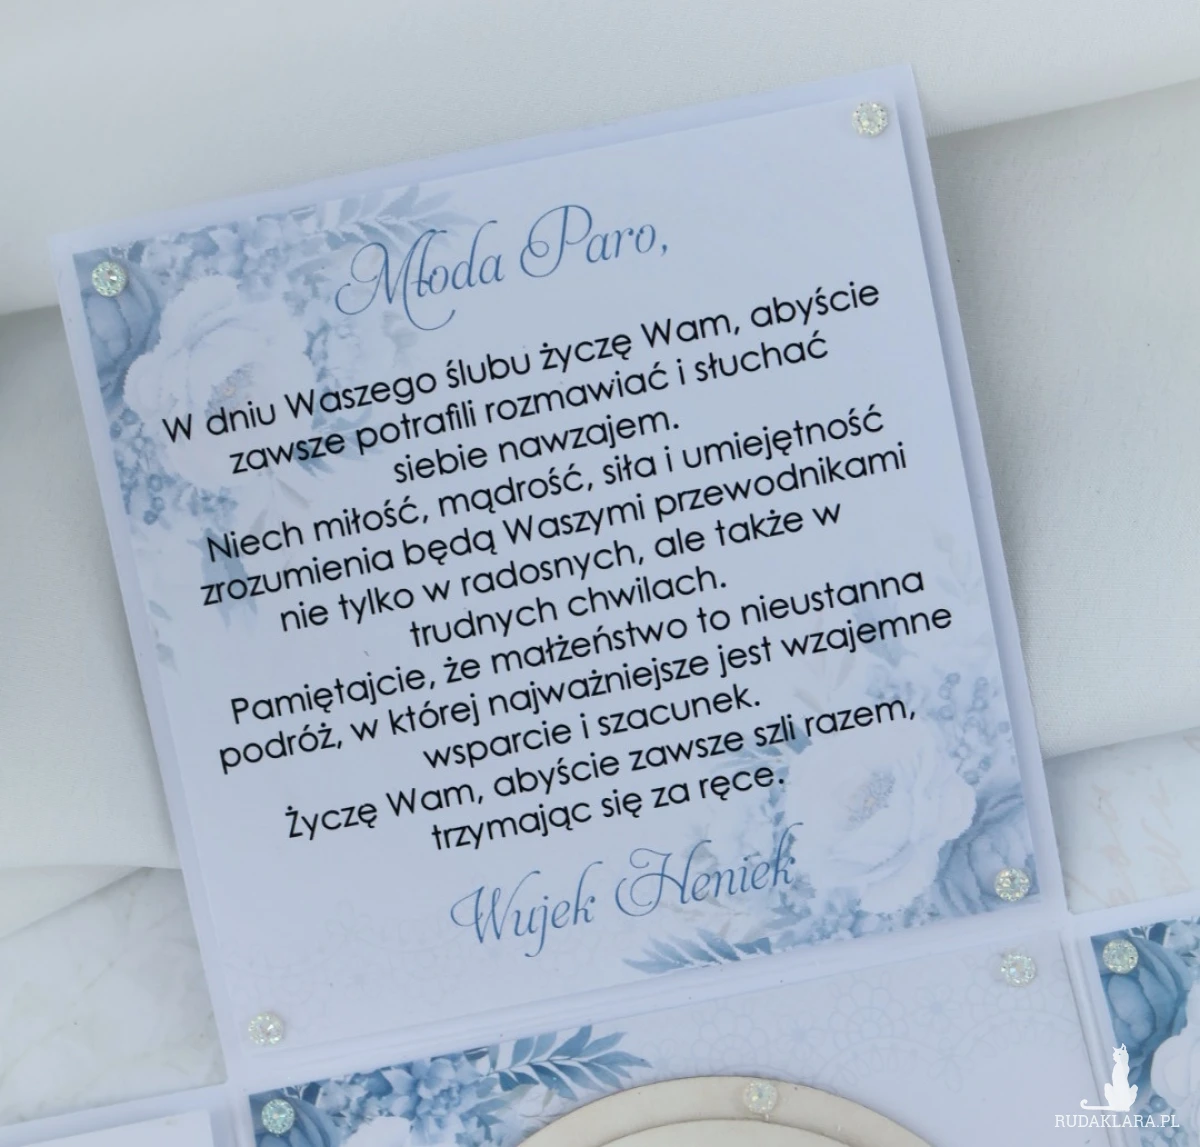 Młoda Paro,
W dniu Waszego ślubu życzę Wam, abyście
zawsze potrafili rozmawiać i słuchać
siebie nawzajem.
Niech miłość, mądrość, siła i umiejętność
zrozumienia będą Waszymi przewodnikami
nie tylko w radosnych, ale także w
trudnych chwilach.
Pamiętajcie, że małżeństwo to nieustanna
podróż, w której najważniejsze jest wzajemne
wsparcie i szacunek.
Życzę Wam, abyście zawsze szli razem,
trzymając się za ręce.
Wujek Heniek
RUDAKLARA.PL